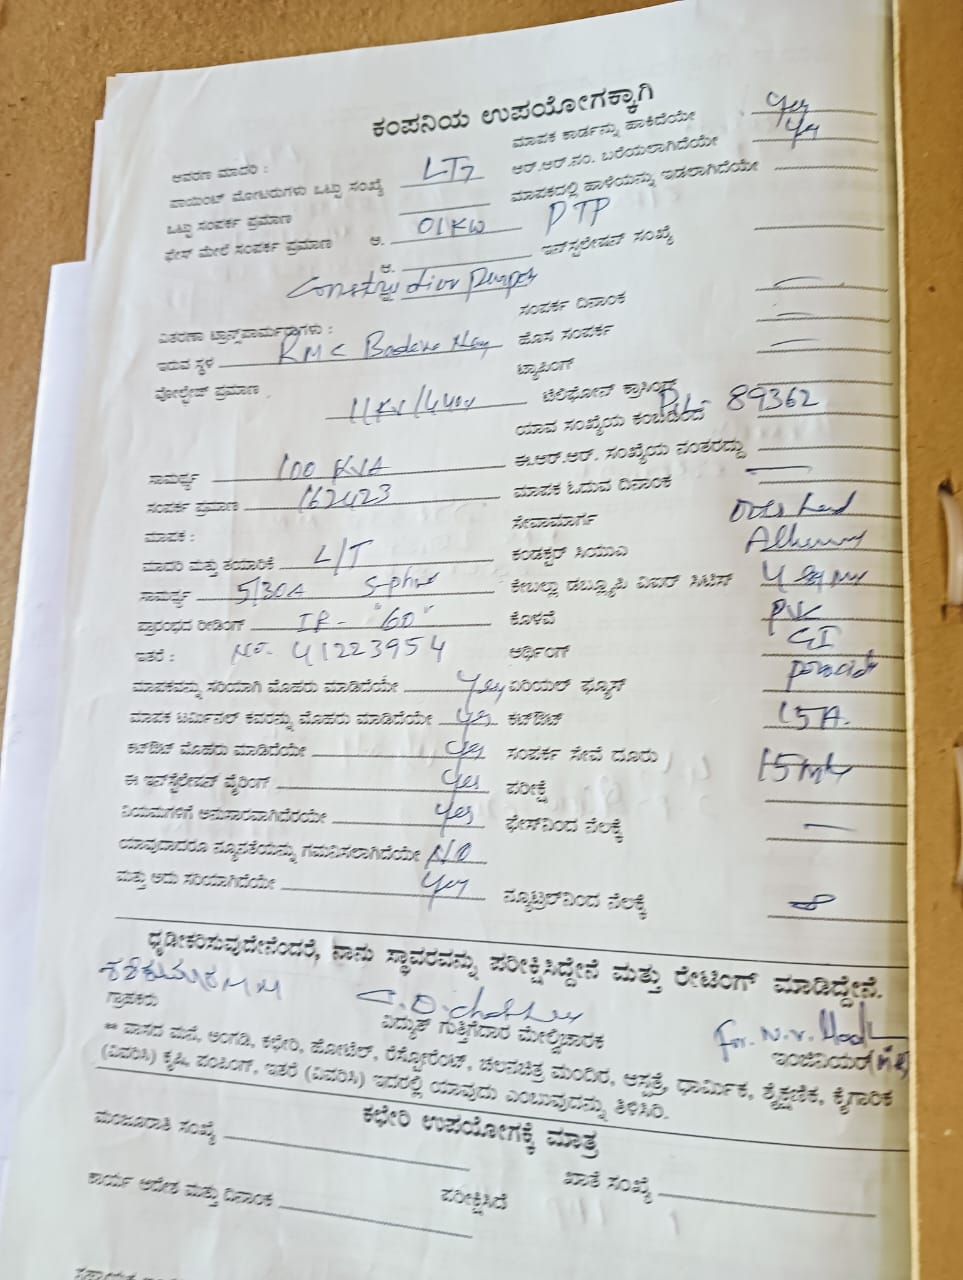 ಕಂಪನಿಯ ಉಪಯೋಗಕ್ಕಾಗಿ
ಆವರಣ ಮಾದರಿ : ಮಾಪಕ ಕಾರ್ಡನ್ನು ಹಾಕಿದೆಯೇ yes
ಪಾಯಿಂಟ್ ಮೋಟರುಗಳು ಒಟ್ಟು ಸಂಖ್ಯೆ LT7 ಆರ್.ಆರ್.ನಂ. ಬರೆಯಲಾಗಿದೆಯೇ yes
ಒಟ್ಟು ಸಂಪರ್ಕ ಪ್ರಮಾಣ ಮಾಪಕದಲ್ಲಿ ಹಾಳೆಯನ್ನು ಇಡಲಾಗಿದೆಯೇ
ಫೇಸ್ ಮೇಲೆ ಸಂಪರ್ಕ ಪ್ರಮಾಣ ಅ. 01KW PTP
ಆ. ಇನ್‌ಸ್ಟಲೇಷನ್ ಸಂಖ್ಯೆ
Construction purpos
ವಿತರಣಾ ಟ್ರಾನ್ಸ್‌ಫಾರ್ಮರುಗಳು : ಸಂಪರ್ಕ ದಿನಾಂಕ
ಇರುವ ಸ್ಥಳ RMC ಹೊಸ ಸಂಪರ್ಕ
ವೋಲ್ಟೇಜ್ ಪ್ರಮಾಣ ಟ್ಯಾಪಿಂಗ್
11KV/440V ಟೆಲಿಫೋನ್ ಕ್ರಾಸಿಂಗ್ಸ್
ಯಾವ ಸಂಖ್ಯೆಯ ಕಂಬದಿಂದ 89362
ಸಾಮರ್ಥ್ಯ 100 KVA ಈ.ಆರ್.ಆರ್. ಸಂಖ್ಯೆಯ ನಂತರದ್ದು
ಸಂಪರ್ಕ ಪ್ರಮಾಣ 162423 ಮಾಪಕ ಓದುವ ದಿನಾಂಕ
ಮಾಪಕ : ಸೇವಾಮಾರ್ಗ Over head
ಮಾದರಿ ಮತ್ತು ತಯಾರಿಕೆ L/T ಕಂಡಕ್ಟರ್ ಸಿಯುಎ
ಸಾಮರ್ಥ್ಯ 5/30A ಕೇಬಲ್ಲಾ ಡಬ್ಲ್ಯೂಪಿ ವಿಐಆರ್ ಸಿಟಿಸ್ 4 sq mm
ಪ್ರಾರಂಭದ ರೀಡಿಂಗ್ IR- "60" ಕೊಳವೆ PVC
ಇತರೆ : No- 41223954 ಅರ್ಥಿಂಗ್ GI
ಮಾಪಕವನ್ನು ಸರಿಯಾಗಿ ಮೊಹರು ಮಾಡಿದೆಯೇ yes ಏರಿಯಲ್ ಫ್ಯೂಸ್
ಮಾಪಕ ಟರ್ಮಿನಲ್ ಕವರನ್ನು ಮೊಹರು ಮಾಡಿದೆಯೇ yes ಕಟ್‌ಔಟ್ 15A.
ಕಟ್‌ಔಟ್ ಮೊಹರು ಮಾಡಿದೆಯೇ yes ಸಂಪರ್ಕ ಸೇವೆ ದೂರು 15
ಈ ಇನ್‌ಸ್ಟಲೇಷನ್ ವೈರಿಂಗ್ yes ಪರೀಕ್ಷೆ
ನಿಯಮಗಳಿಗೆ ಅನುಸಾರವಾಗಿದೆಯೇ yes ಫೇಸ್‌ನಿಂದ ನೆಲಕ್ಕೆ
ಯಾವುದಾದರೂ ನ್ಯೂನತೆಯನ್ನು ಗಮನಿಸಲಾಗಿದೆಯೇ NO
ಮತ್ತು ಅದು ಸರಿಯಾಗಿದೆಯೇ yes ನ್ಯೂಟ್ರಲ್‌ನಿಂದ ನೆಲಕ್ಕೆ
ಧೃಡೀಕರಿಸುವುದೇನೆಂದರೆ, ನಾನು ಸ್ಥಾವರವನ್ನು ಪರೀಕ್ಷಿಸಿದ್ದೇನೆ ಮತ್ತು ರೇಟಿಂಗ್ ಮಾಡಿದ್ದೇನೆ.
ಗ್ರಾಹಕರು ವಿದ್ಯುತ್ ಗುತ್ತಿಗೆದಾರ ಮೇಲ್ವಿಚಾರಕ ಇಂಜಿನಿಯರ್
** ವಾಸದ ಮನೆ, ಅಂಗಡಿ, ಕಛೇರಿ, ಹೋಟೆಲ್, ರೆಸ್ಟೋರೆಂಟ್, ಚಲನಚಿತ್ರ ಮಂದಿರ, ಆಸ್ಪತ್ರೆ, ಧಾರ್ಮಿಕ, ಶೈಕ್ಷಣಿಕ, ಕೈಗಾರಿಕ
(ವಿವರಿಸಿ) ಕೃಷಿ, ಪಂಪಿಂಗ್, ಇತರೆ (ವಿವರಿಸಿ) ಇದರಲ್ಲಿ ಯಾವುದು ಎಂಬುವುದನ್ನು ತಿಳಿಸಿರಿ.
ಕಛೇರಿ ಉಪಯೋಗಕ್ಕೆ ಮಾತ್ರ
ಮಂಜೂರಾತಿ ಸಂಖ್ಯೆ ಖಾತೆ ಸಂಖ್ಯೆ
ಕಾರ್ಯ ಆದೇಶ ಮತ್ತು ದಿನಾಂಕ ಪರೀಕ್ಷಿಸಿದೆ